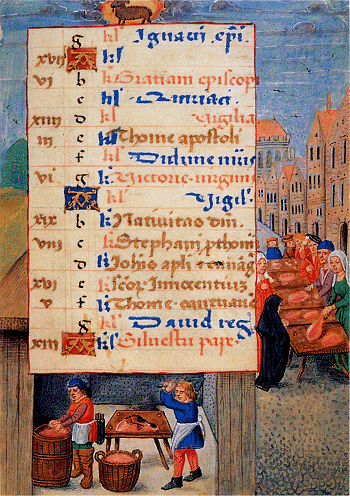 g kl Ignacii epi.
xvii A kl
vi b kl Gratiani episcopi
c kl Quiriaci.
xiiii d kl Vigilia
iii e kl Thome apostoli
f kl Didime
vi g kl Victorie virginis
A kl Vigil.
xix b kl Nativitas dni.
viii c kl Stephani prothom
d kl Johis apli & euang
xvi e kl Scor Innocentium
v f kl Thome cantuarie
g kl David reg
xiii A kl Silvestri pape.